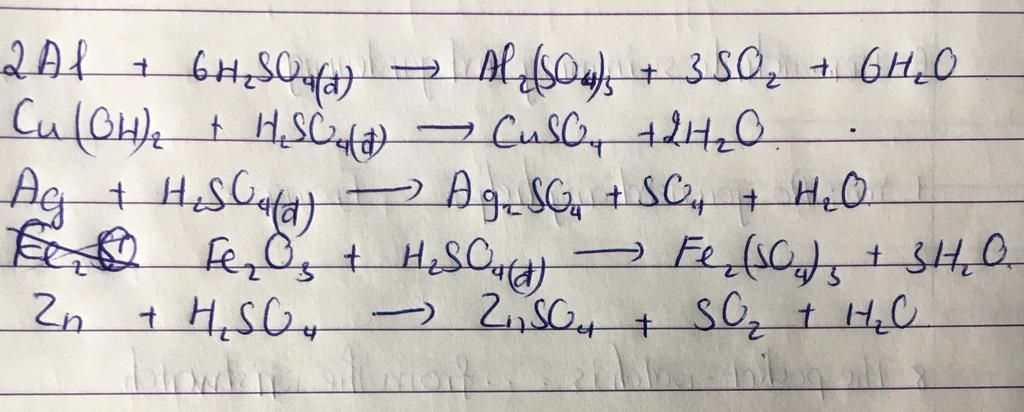 2Al + 6H₂SO₄(đ) → Al₂(SO₄)₃ + 3SO₂ + 6H₂O
Cu(OH)₂ + H₂SO₄(đ) → CuSO₄ + 2H₂O.
Ag + H₂SO₄(đ) → Ag₂SO₄ + SO₄ + H₂O.
Fe₂O₃ + H₂SO₄(đ) → Fe₂(SO₄)₃ + 3H₂O.
Zn + H₂SO₄ → ZnSO₄ + SO₂ + H₂O